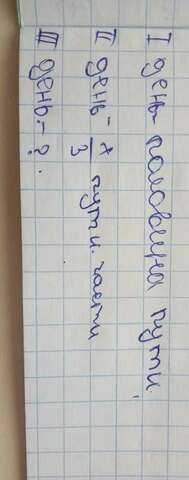 I день половина пути
II день - 1/3 пути части
III день - ?